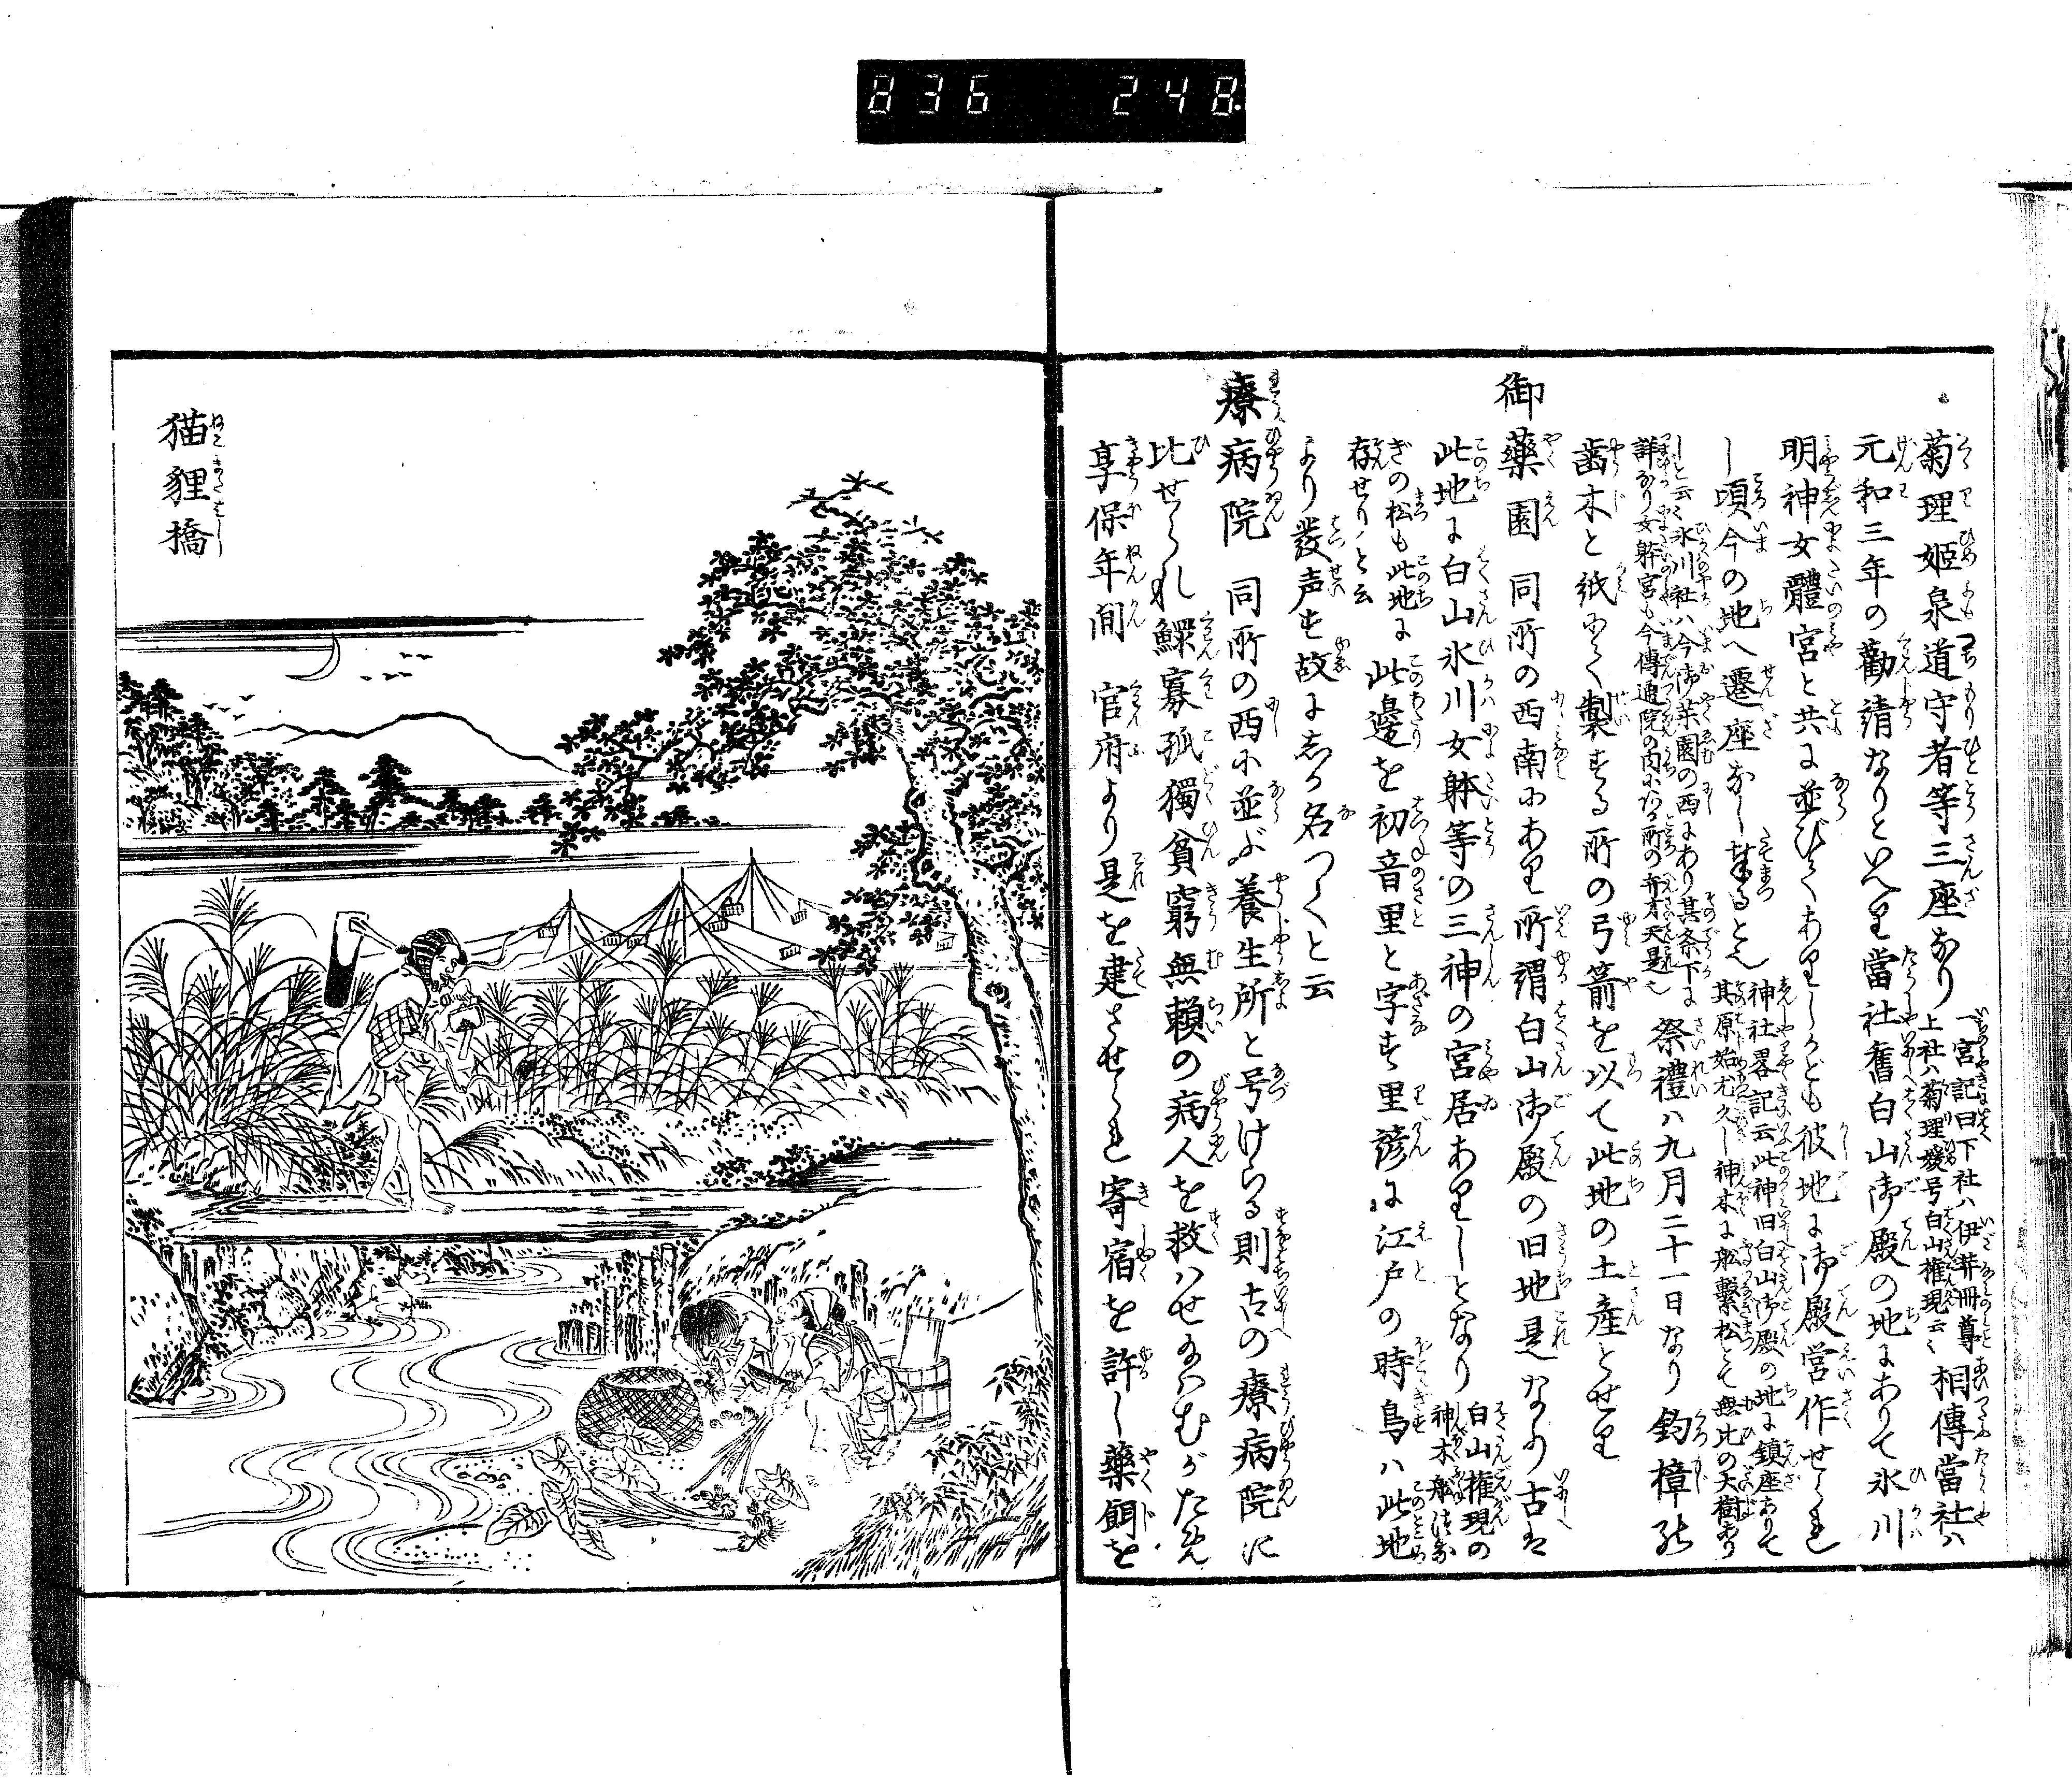 836 248
菊理姫泉道守者等三座なり
一宮記曰下社ハ伊弉冊尊
上社ハ菊理媛号白山権現云々
相傳當社ハ
元和三年の勸請なりといへり當社舊白山御殿の地にありて氷川
明神女體宮と共に並びてありしかども彼地に御殿営作せられ
し頃今の地へ遷座なし奉るとぞ
神社畧記云此神旧白山御殿の地に鎮座ありて
其原始尤久し神木に船繋松とて無比の大樹あり
しと云々氷川社ハ今御薬園の西にあり其条下に
詳なり女躰宮も今傳通院の内にある所の弁才天是也
祭禮ハ九月二十一日なり釣樟の
歯木と紙にて製する所の弓箭を以て此地の土産とせり
御藥園 同所の西南にあり所謂白山御殿の旧地是なり古は
此地に白山氷川女躰等の三神の宮居ありしとなり
白山権現の
神木船つな
ぎの松も此地に
存せりと云
此邊を初音里と字す里諺に江戸の時鳥ハ此地
より發声す故にしか名つくと云
療病院 同所の西に並ぶ養生所と号けらる則古の療病院に
比せられ鰥寡孤獨貧窮無頼の病人を救ハせ給ハむがため
享保年間 官府より是を建させられ寄宿を許し藥餌を
猫貍橋